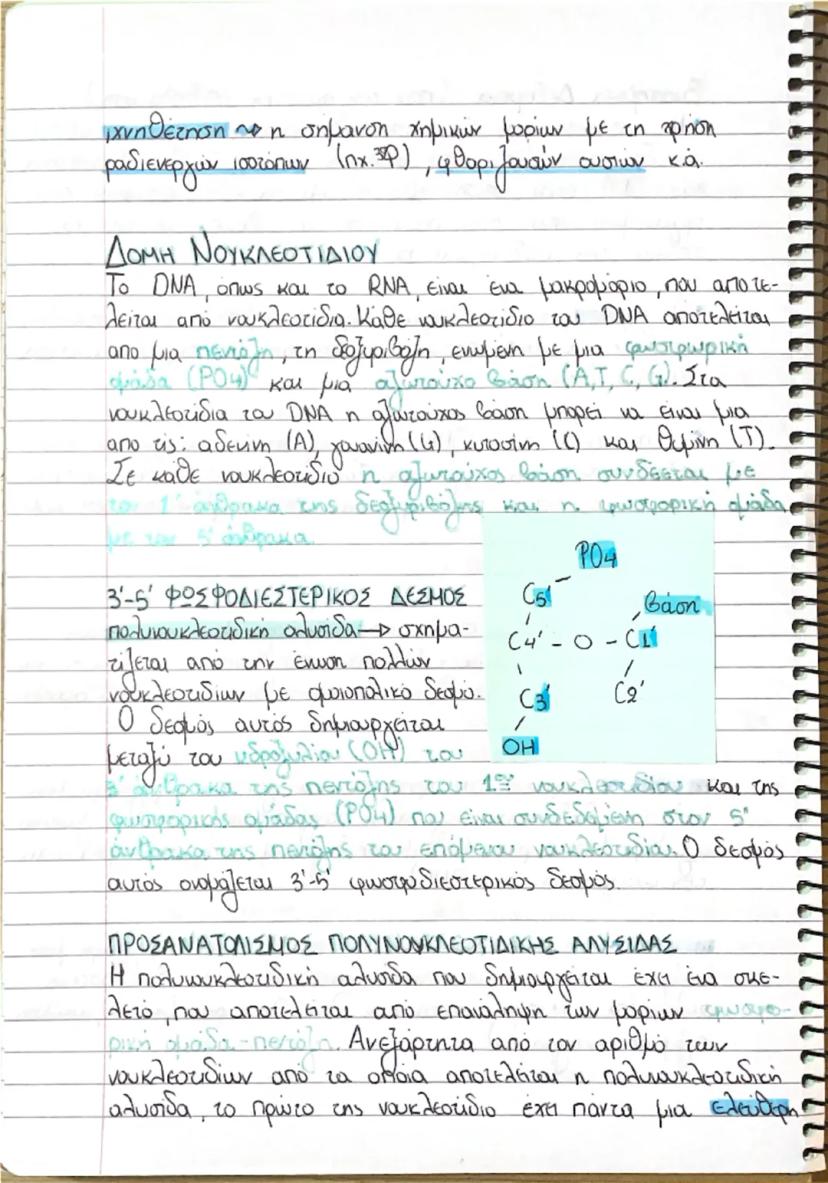 ιχνηθέτηση ~> η σήμανση χημικών μορίων με τη χρήση
ραδιενεργών ισοτόπων (πχ. ³²P), φθοριζουσών ουσιών κ.ά.
ΔΟΜΗ ΝΟΥΚΛΕΟΤΙΔΙΟΥ
Το DNA, όπως και το RNA, είναι ένα μακρομόριο, που αποτε-
λείται από νουκλεοτίδια. Κάθε νουκλεοτίδιο του DNA αποτελείται
απο μια πεντόζη, τη δεξυριβόζη, ενωμένη με μια φωσφωρική
ομάδα (PO4) και μια αζωτούχο βάση (A,T, C, G). Στα
νουκλεοτίδια του DNA η αζωτούχος βάση μπορεί να είναι μια
απο τις: αδενίνη (A), γουανίνη (G), κυτοσίνη (C) και θυμίνη (T).
Σε κάθε νουκλεοτίδιο η αζωτούχος βάση συνδέεται με
τον 1' άνθρακα της δεοξυριβόζης και η φωσφορική ομάδα
με τον 5' άνθρακα.
3'-5' ΦΩΣΦΟΔΙΕΣΤΕΡΙΚΟΣ ΔΕΣΜΟΣ
πολυνουκλεοτιδική αλυσίδα → σχημα-
τίζεται από την ένωση πολλών
νουκλεοτιδίων με ομοιοπολικό δεσμό.
Ο δεσμός αυτός δημιουργείται
μεταξύ του υδροξυλίου (OH) του
3' άνθρακα της πεντόζης του 1ου νουκλεοτιδίου και της
φωσφορικής ομάδας (PO4) που είναι συνδεδεμένη στον 5'
άνθρακα της πεντόζης του επόμενου νουκλεοτιδίου. Ο δεσμός
αυτός ονομάζεται 3'-5' φωσφοδιεστερικός δεσμός.
PO4
C5' βάση
C4' - O - C1'
C3' C2'
OH
ΠΡΟΣΑΝΑΤΟΛΙΣΜΟΣ ΠΟΛΥΝΟΥΚΛΕΟΤΙΔΙΚΗΣ ΑΛΥΣΙΔΑΣ
Η πολυνουκλεοτιδική αλυσίδα που δημιουργείται έχει ένα σκε-
λετό, που αποτελείται από επανάληψη των μορίων φωσφο-
ρική ομάδα-πεντόζη. Ανεξάρτητα από τον αριθμό των
νουκλεοτιδίων από τα οποία αποτελείται η πολυνουκλεοτιδική
αλυσίδα, το πρώτο της νουκλεοτίδιο έχει πάντα μια ελεύθερη